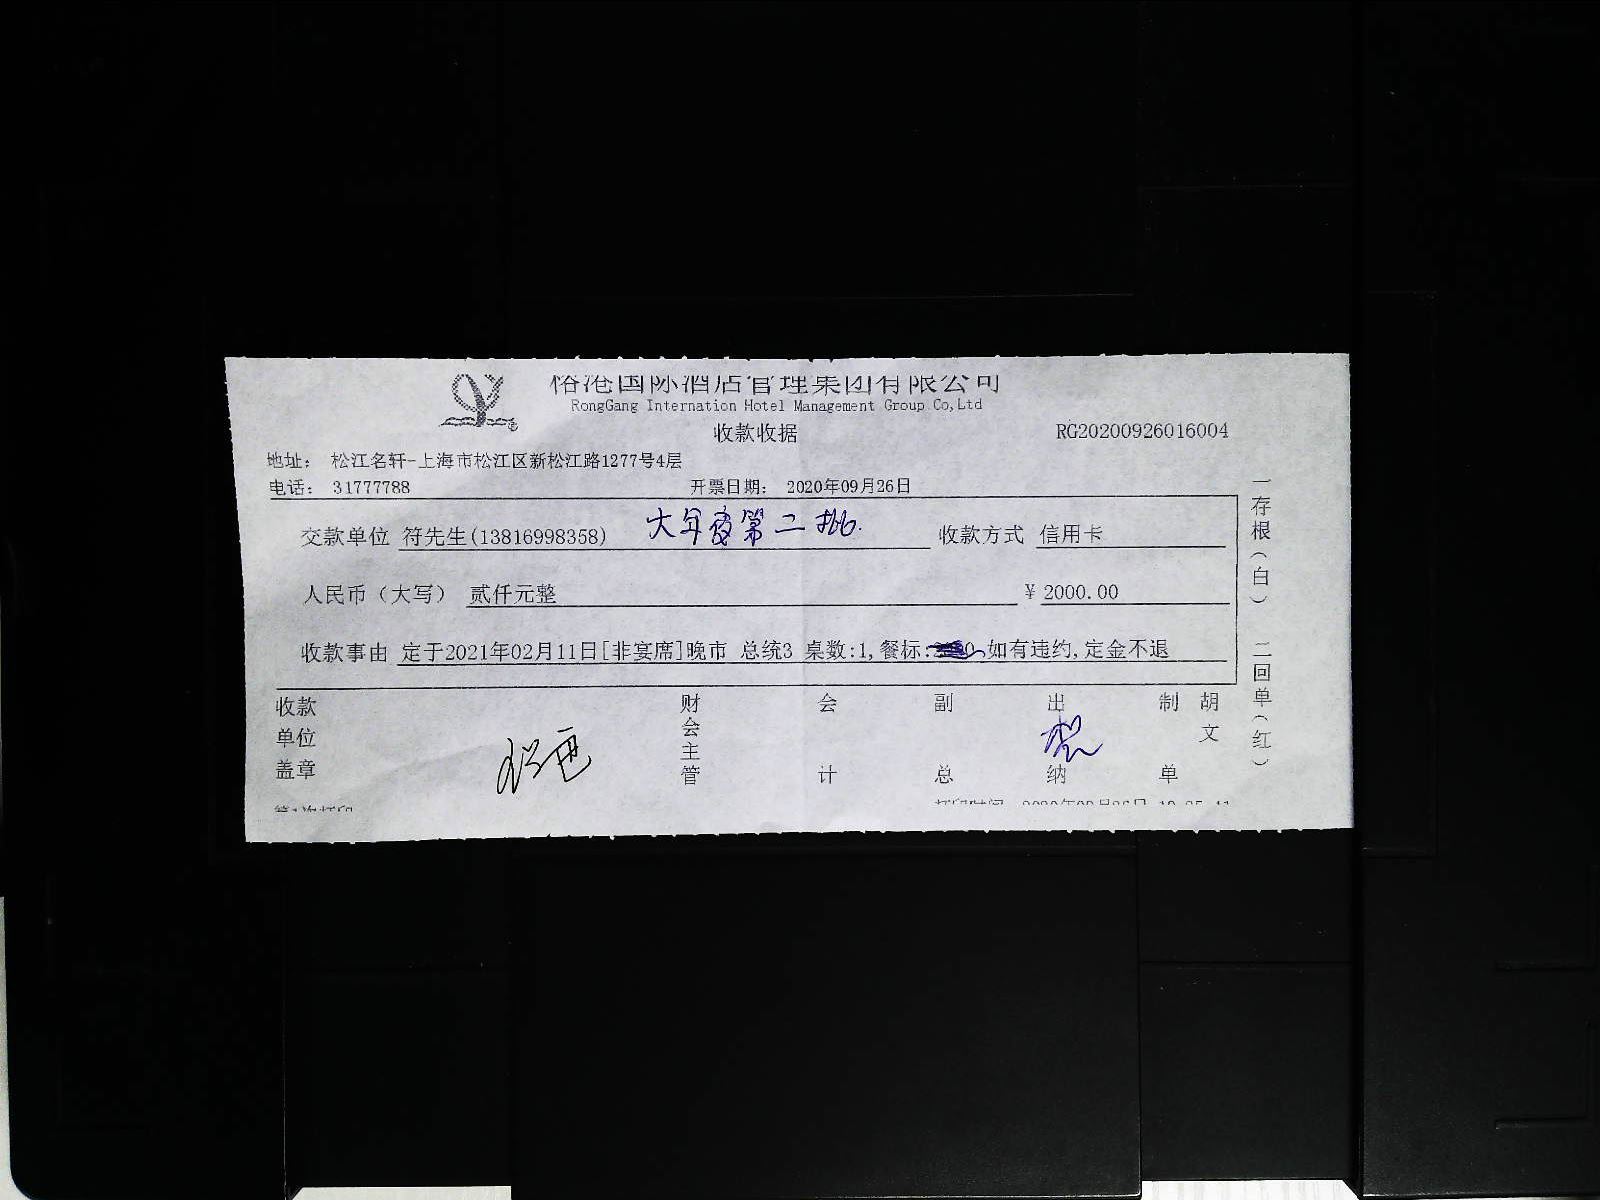 榕港国际酒店管理集团有限公司
RongGang Internation Hotel Management Group Co,Ltd
收款收据
RG20200926016004
地址： 松江名轩-上海市松江区新松江路1277号4层
电话： 31777788 开票日期： 2020年09月26日
交款单位 符先生(13816998358) 大年夜第二批. 收款方式 信用卡
人民币（大写） 贰仟元整 ¥ 2000.00
收款事由 定于2021年02月11日[非宴席]晚市 总统3 桌数:1,餐标: 如有违约,定金不退
收款单位盖章 财会主管 会计 副总 出纳 制单 胡文
第1次打印
一存根（白） 二回单（红）